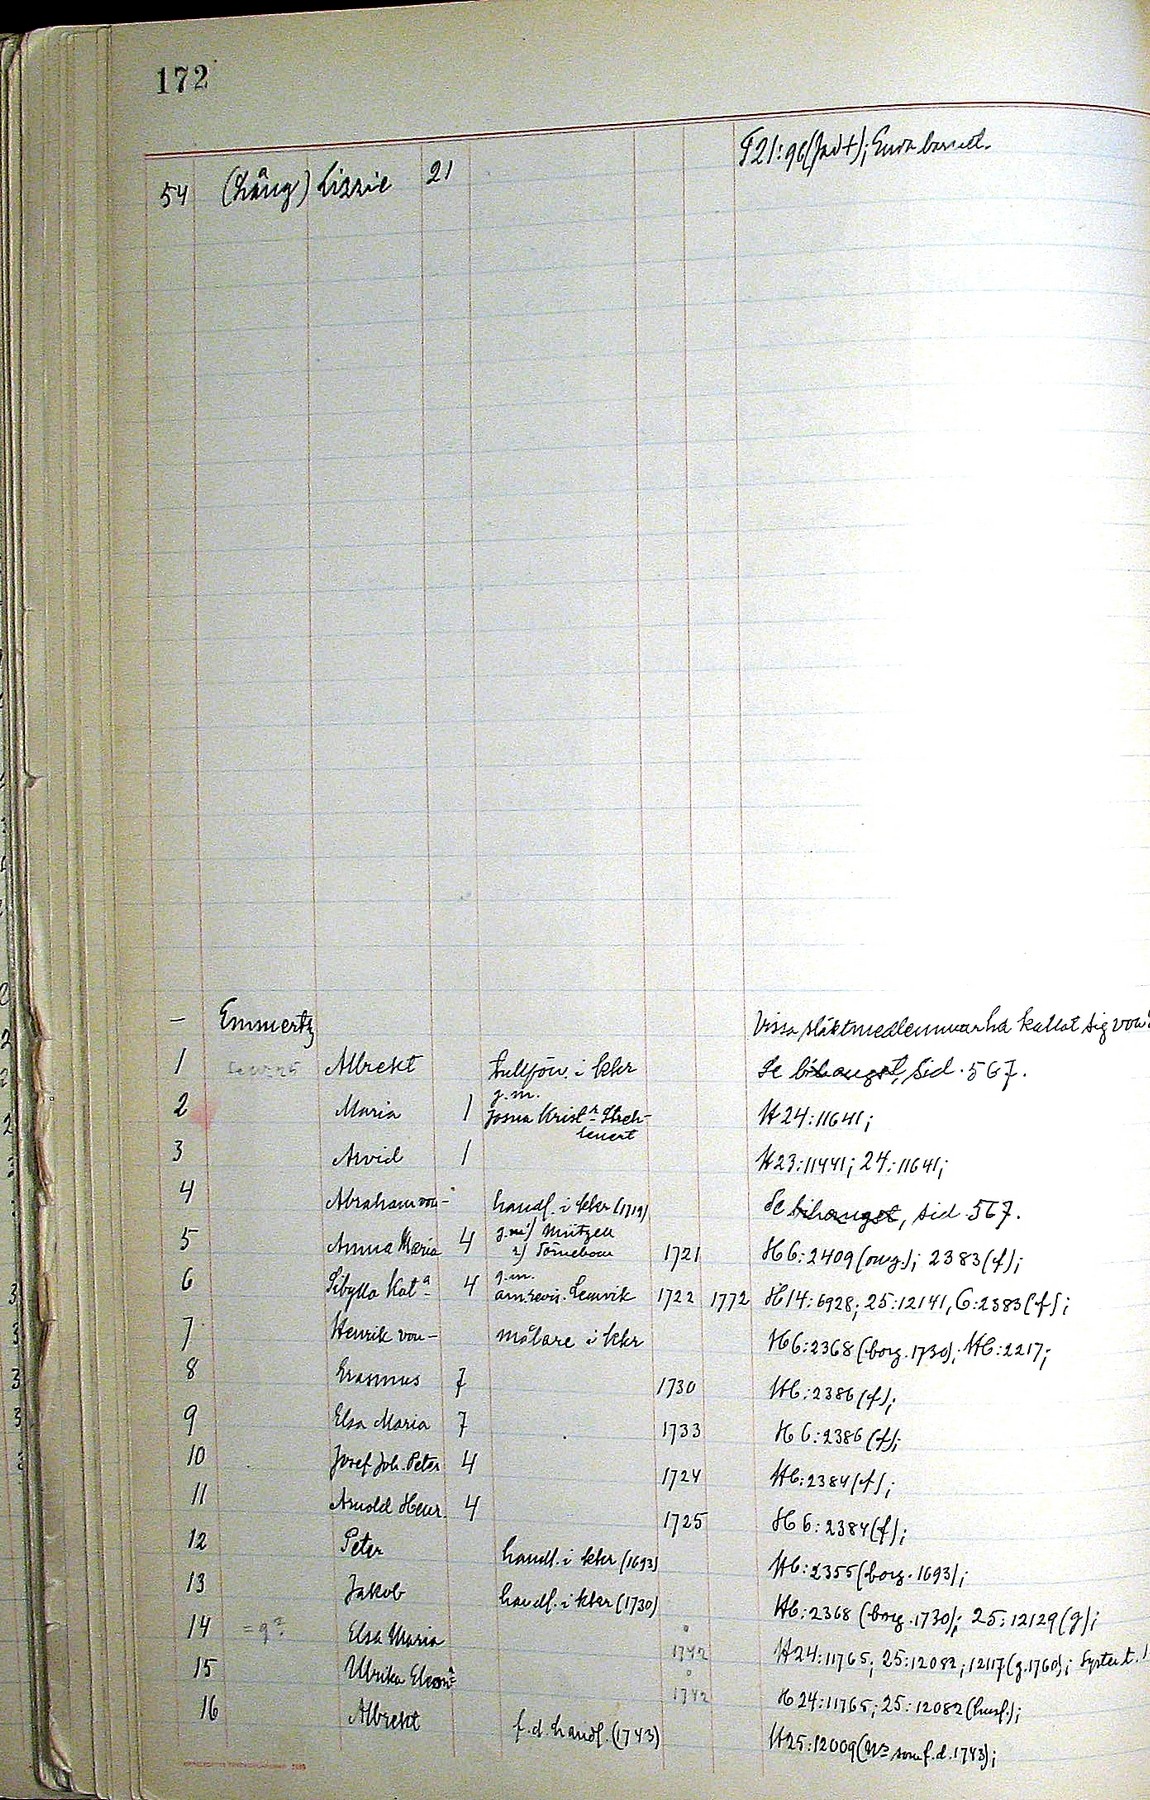 172
54 (Lång) Lizzie 21 F21:96(fad+); Enda barnet.
— Emmertz Vissa släktmedlemmar ha kallat sig von
1 Albrekt i kkr Se bihanget, sid. 567.
2 Maria 1 g.m. Josua Krist:r H24:11641;
3 Arvid 1 H23:11441; 24:11641;
4 Abraham von- handl. i kkr (1719) Se bihanget, sid. 567.
5 Anna Maria 4 g.m. 1) Mützell
2) Törnebom 1721 H6:2409 (omg.); 2383(f);
6 Sibylla Kat:a 4 g.m.
am.revis. Lenvik 1722 1772 H14:6928; 25:12141, 6:2383(f);
7 Henrik von- målare i kkr H6:2368 (borg. 1730); H6:2217;
8 Erasmus 7 1730 H6:2386(f);
9 Elsa Maria 7 1733 H6:2386(f);
10 Josef Joh. Peter 4 1724 H6:2384(f);
11 Arnold Henr. 4 1725 H6:2384(f);
12 Peter handl. i kkr (1693) H6:2355 (borg. 1693);
13 Jakob handl. i kkr (1730) H6:2368 (borg. 1730); 25:12129(g);
14 =9? Elsa Maria 1742 H24:11765; 25:12082; 12117(g.1760); Syster t. 1
15 Ulrika Eleon:a 1742 H24:11765; 25:12082 (husf.);
16 Albrekt f.d. handl. (1743) H25:12009 (N= som f.d. 1743);